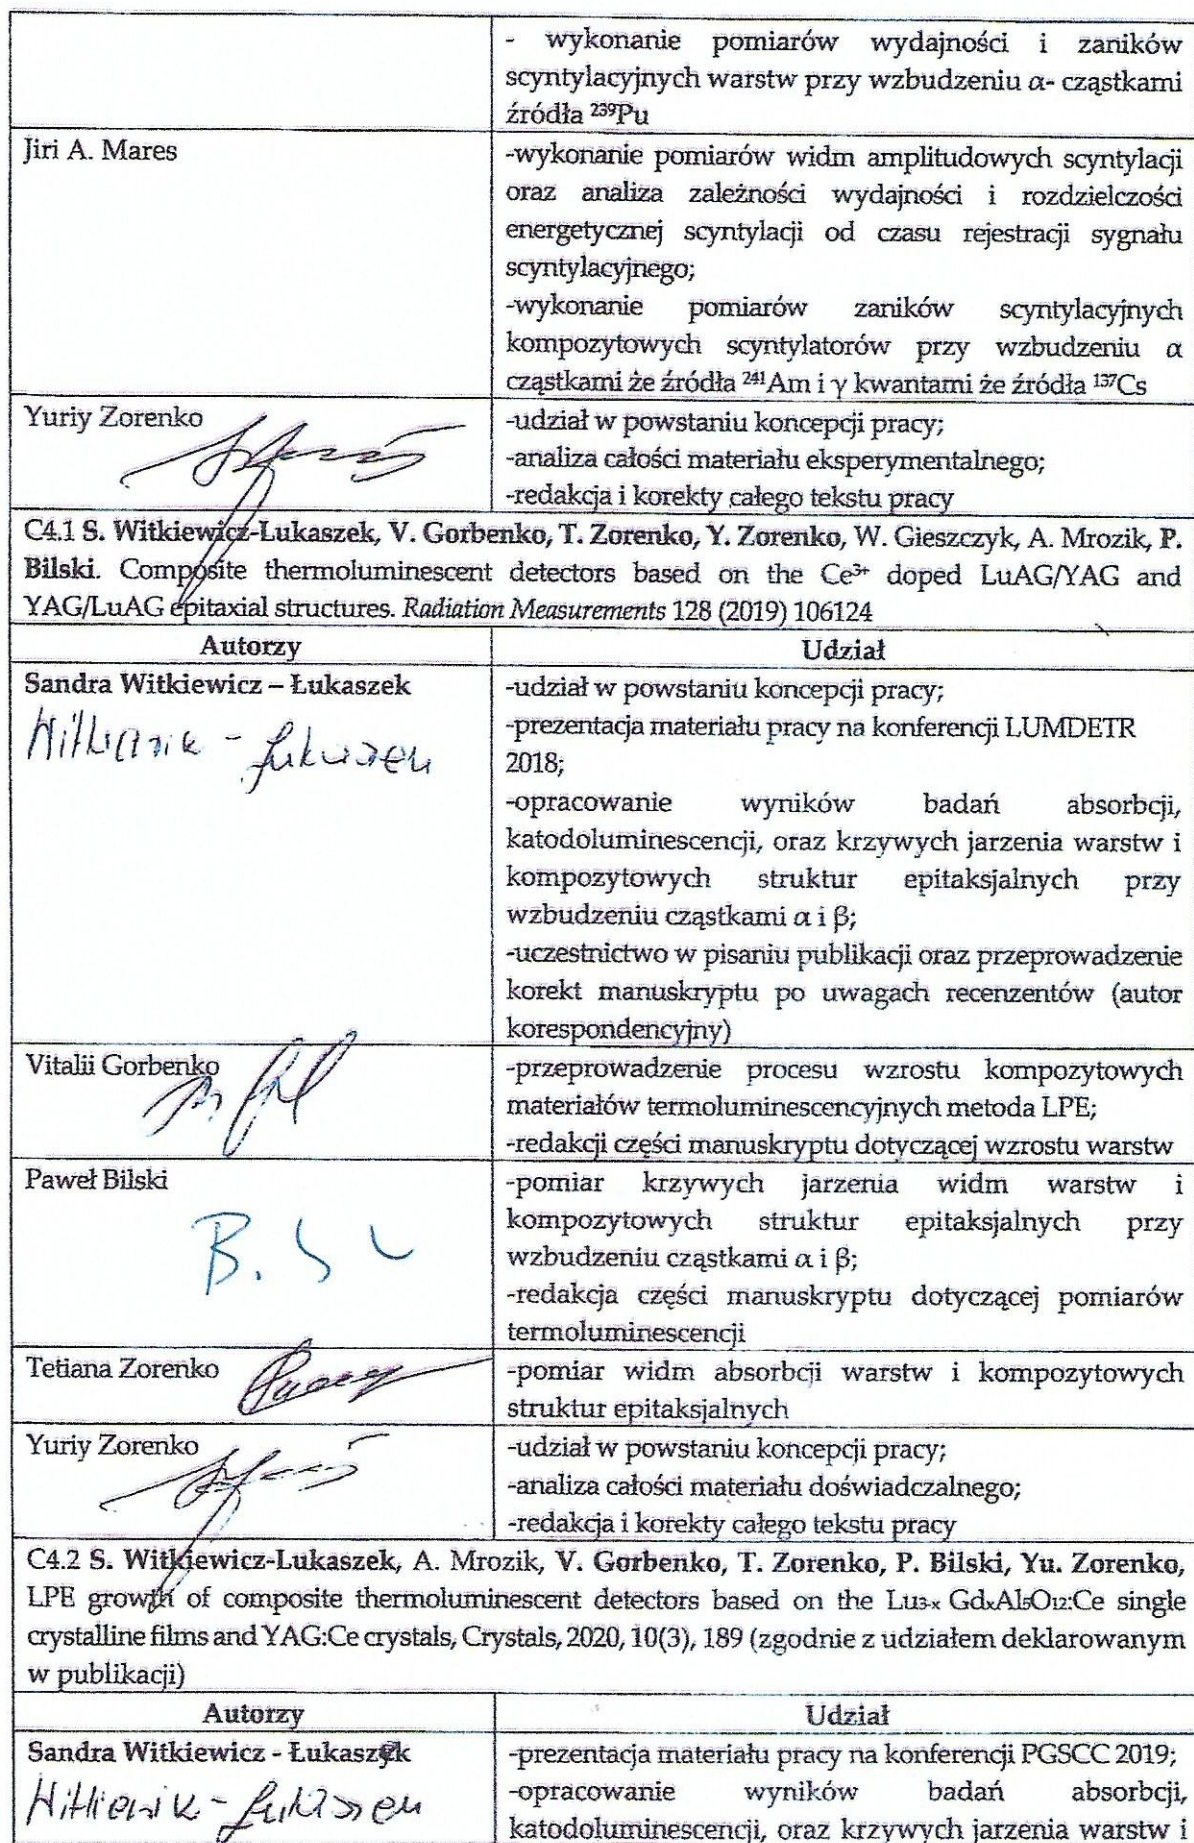 - wykonanie pomiarów wydajności i zaników
scyntylacyjnych warstw przy wzbudzeniu α- cząstkami
źródła ²³⁹Pu
Jiri A. Mares
-wykonanie pomiarów widm amplitudowych scyntylacji
oraz analiza zależności wydajności i rozdzielczości
energetycznej scyntylacji od czasu rejestracji sygnału
scyntylacyjnego;
-wykonanie pomiarów zaników scyntylacyjnych
kompozytowych scyntylatorów przy wzbudzeniu α
cząstkami że źródła ²⁴¹Am i γ kwantami że źródła ¹³⁷Cs
Yuriy Zorenko
-udział w powstaniu koncepcji pracy;
-analiza całości materiału eksperymentalnego;
-redakcja i korekty całego tekstu pracy
C4.1 S. Witkiewicz-Lukaszek, V. Gorbenko, T. Zorenko, Y. Zorenko, W. Gieszczyk, A. Mrozik, P.
Bilski. Composite thermoluminescent detectors based on the Ce³⁺ doped LuAG/YAG and
YAG/LuAG epitaxial structures. Radiation Measurements 128 (2019) 106124
Autorzy Udział
Sandra Witkiewicz – Łukaszek
-udział w powstaniu koncepcji pracy;
-prezentacja materiału pracy na konferencji LUMDETR
2018;
-opracowanie wyników badań absorbcji,
katodoluminescencji, oraz krzywych jarzenia warstw i
kompozytowych struktur epitaksjalnych przy
wzbudzeniu cząstkami α i β;
-uczestnictwo w pisaniu publikacji oraz przeprowadzenie
korekt manuskryptu po uwagach recenzentów (autor
korespondencyjny)
Vitalii Gorbenko
-przeprowadzenie procesu wzrostu kompozytowych
materiałów termoluminescencyjnych metoda LPE;
-redakcji części manuskryptu dotyczącej wzrostu warstw
Paweł Bilski
-pomiar krzywych jarzenia widm warstw i
kompozytowych struktur epitaksjalnych przy
wzbudzeniu cząstkami α i β;
-redakcja części manuskryptu dotyczącej pomiarów
termoluminescencji
Tetiana Zorenko
-pomiar widm absorbcji warstw i kompozytowych
struktur epitaksjalnych
Yuriy Zorenko
-udział w powstaniu koncepcji pracy;
-analiza całości materiału doświadczalnego;
-redakcja i korekty całego tekstu pracy
C4.2 S. Witkiewicz-Lukaszek, A. Mrozik, V. Gorbenko, T. Zorenko, P. Bilski, Yu. Zorenko,
LPE growth of composite thermoluminescent detectors based on the Lu₃₋ₓ GdₓAl₅O₁₂:Ce single
crystalline films and YAG:Ce crystals, Crystals, 2020, 10(3), 189 (zgodnie z udziałem deklarowanym
w publikacji)
Autorzy Udział
Sandra Witkiewicz - Łukaszek
-prezentacja materiału pracy na konferencji PGSCC 2019;
-opracowanie wyników badań absorbcji,
katodoluminescencji, oraz krzywych jarzenia warstw i